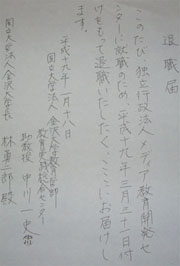 退職届
このたび独立行政法人メディア教育開発セ
ンターに就職のため、平成十九年三月三十一日付
けをもって退職いたしたく、ここにお届けし
ます。
平成十九年一月十八日
国立大学法人金沢大学教育学部
教育実践総合センター
助教授 中川一史
国立大学法人金沢大学長
林勇二郎殿